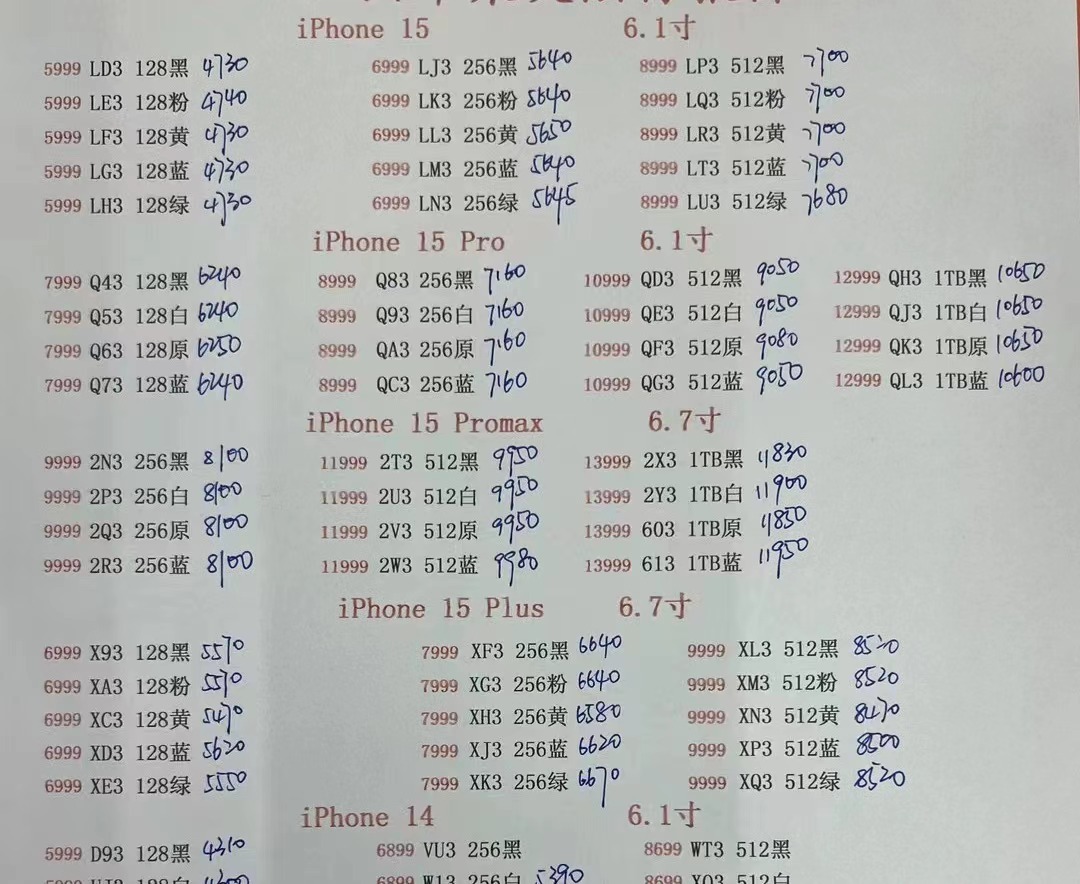 iPhone 15 6.1寸
5999 LD3 128黑 4730 6999 LJ3 256黑 5640 8999 LP3 512黑 7700
5999 LE3 128粉 4740 6999 LK3 256粉 5640 8999 LQ3 512粉 7700
5999 LF3 128黄 4730 6999 LL3 256黄 5650 8999 LR3 512黄 7700
5999 LG3 128蓝 4730 6999 LM3 256蓝 5640 8999 LT3 512蓝 7700
5999 LH3 128绿 4730 6999 LN3 256绿 5645 8999 LU3 512绿 7680
iPhone 15 Pro 6.1寸
7999 Q43 128黑 6240 8999 Q83 256黑 7160 10999 QD3 512黑 9050 12999 QH3 1TB黑 10650
7999 Q53 128白 6240 8999 Q93 256白 7160 10999 QE3 512白 9050 12999 QJ3 1TB白 10650
7999 Q63 128原 6250 8999 QA3 256原 7160 10999 QF3 512原 9080 12999 QK3 1TB原 10650
7999 Q73 128蓝 6240 8999 QC3 256蓝 7160 10999 QG3 512蓝 9050 12999 QL3 1TB蓝 10600
iPhone 15 Promax 6.7寸
9999 2N3 256黑 8100 11999 2T3 512黑 9950 13999 2X3 1TB黑 11830
9999 2P3 256白 8100 11999 2U3 512白 9950 13999 2Y3 1TB白 11900
9999 2Q3 256原 8100 11999 2V3 512原 9950 13999 603 1TB原 11850
9999 2R3 256蓝 8100 11999 2W3 512蓝 9980 13999 613 1TB蓝 11950
iPhone 15 Plus 6.7寸
6999 X93 128黑 5570 7999 XF3 256黑 6640 9999 XL3 512黑 8520
6999 XA3 128粉 5570 7999 XG3 256粉 6640 9999 XM3 512粉 8520
6999 XC3 128黄 5470 7999 XH3 256黄 6580 9999 XN3 512黄 8470
6999 XD3 128蓝 5620 7999 XJ3 256蓝 6620 9999 XP3 512蓝 8500
6999 XE3 128绿 5550 7999 XK3 256绿 6670 9999 XQ3 512绿 8520
iPhone 14 6.1寸
5999 D93 128黑 4310 6899 VU3 256黑 8699 WT3 512黑
128白 6899 W13 256白 5390 8699 XQ3 512白